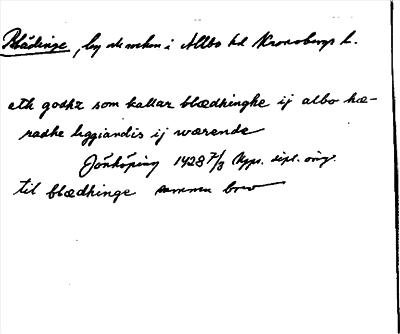 Blädinge, by o socken i Allbo hd Kronobergs l.
eth godhz som kallar blædhinghe ij albo hæ-
radhe liggiandis ij wærende
Jönköping 1428 7/3 Upps. dipl. orig.
til blædhinge samma brev